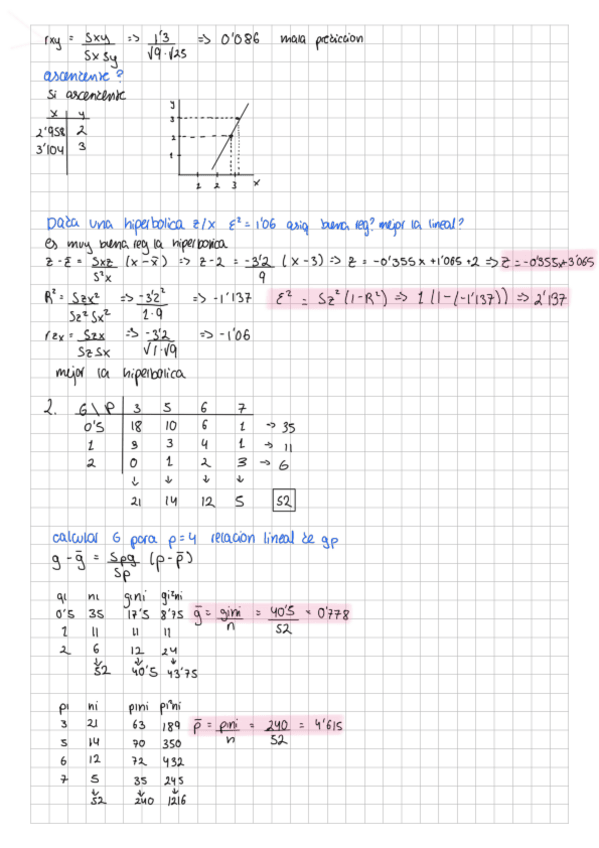 rxy = Sxy / SxSy => 1'3 / √9·√25 => 0'086 mala prediccion
ascendente?
Si ascendente
x | y
2'958 | 2
3'104 | 3
y
3
2
1
1 2 3 x
Dada una hiperbolica z/x ε² = 1'06 asig buena reg? mejor la lineal?
es muy buena reg la hiperbolica
z - z̄ = Sxz / S²x (x - x̄) => z - 2 = -3'2 / 9 (x - 3) => z = -0'355x + 1'065 + 2 => z = -0'355x + 3'065
R² = Szx² / Sz² Sx² => -3'2² / 1·9 => -1'137 ε² = Sz² (1 - R²) => 1 (1 - (-1'137)) => 2'137
rzx = Szx / Sz Sx => -3'2 / √1·√9 => -1'06
mejor la hiperbolica
2. G\P | 3 5 6 7
0'5 | 18 10 6 1 → 35
1 | 3 3 4 1 → 11
2 | 0 1 2 3 → 6
↓ ↓ ↓ ↓
21 14 12 5 52
calcular G para p=4 relacion lineal de gp
g - ḡ = Spg / Sp (p - p̄)
gi ni gini gi²ni
0'5 35 17'5 8'75 ḡ = gini / n = 40'5 / 52 = 0'778
1 11 11 11
2 6 12 24
↓52 ↓40'5 ↓43'75
pi ni pini pi²ni
3 21 63 189 p̄ = pini / n = 240 / 52 = 4'615
5 14 70 350
6 12 72 432
7 5 35 245
↓52 ↓240 ↓1216